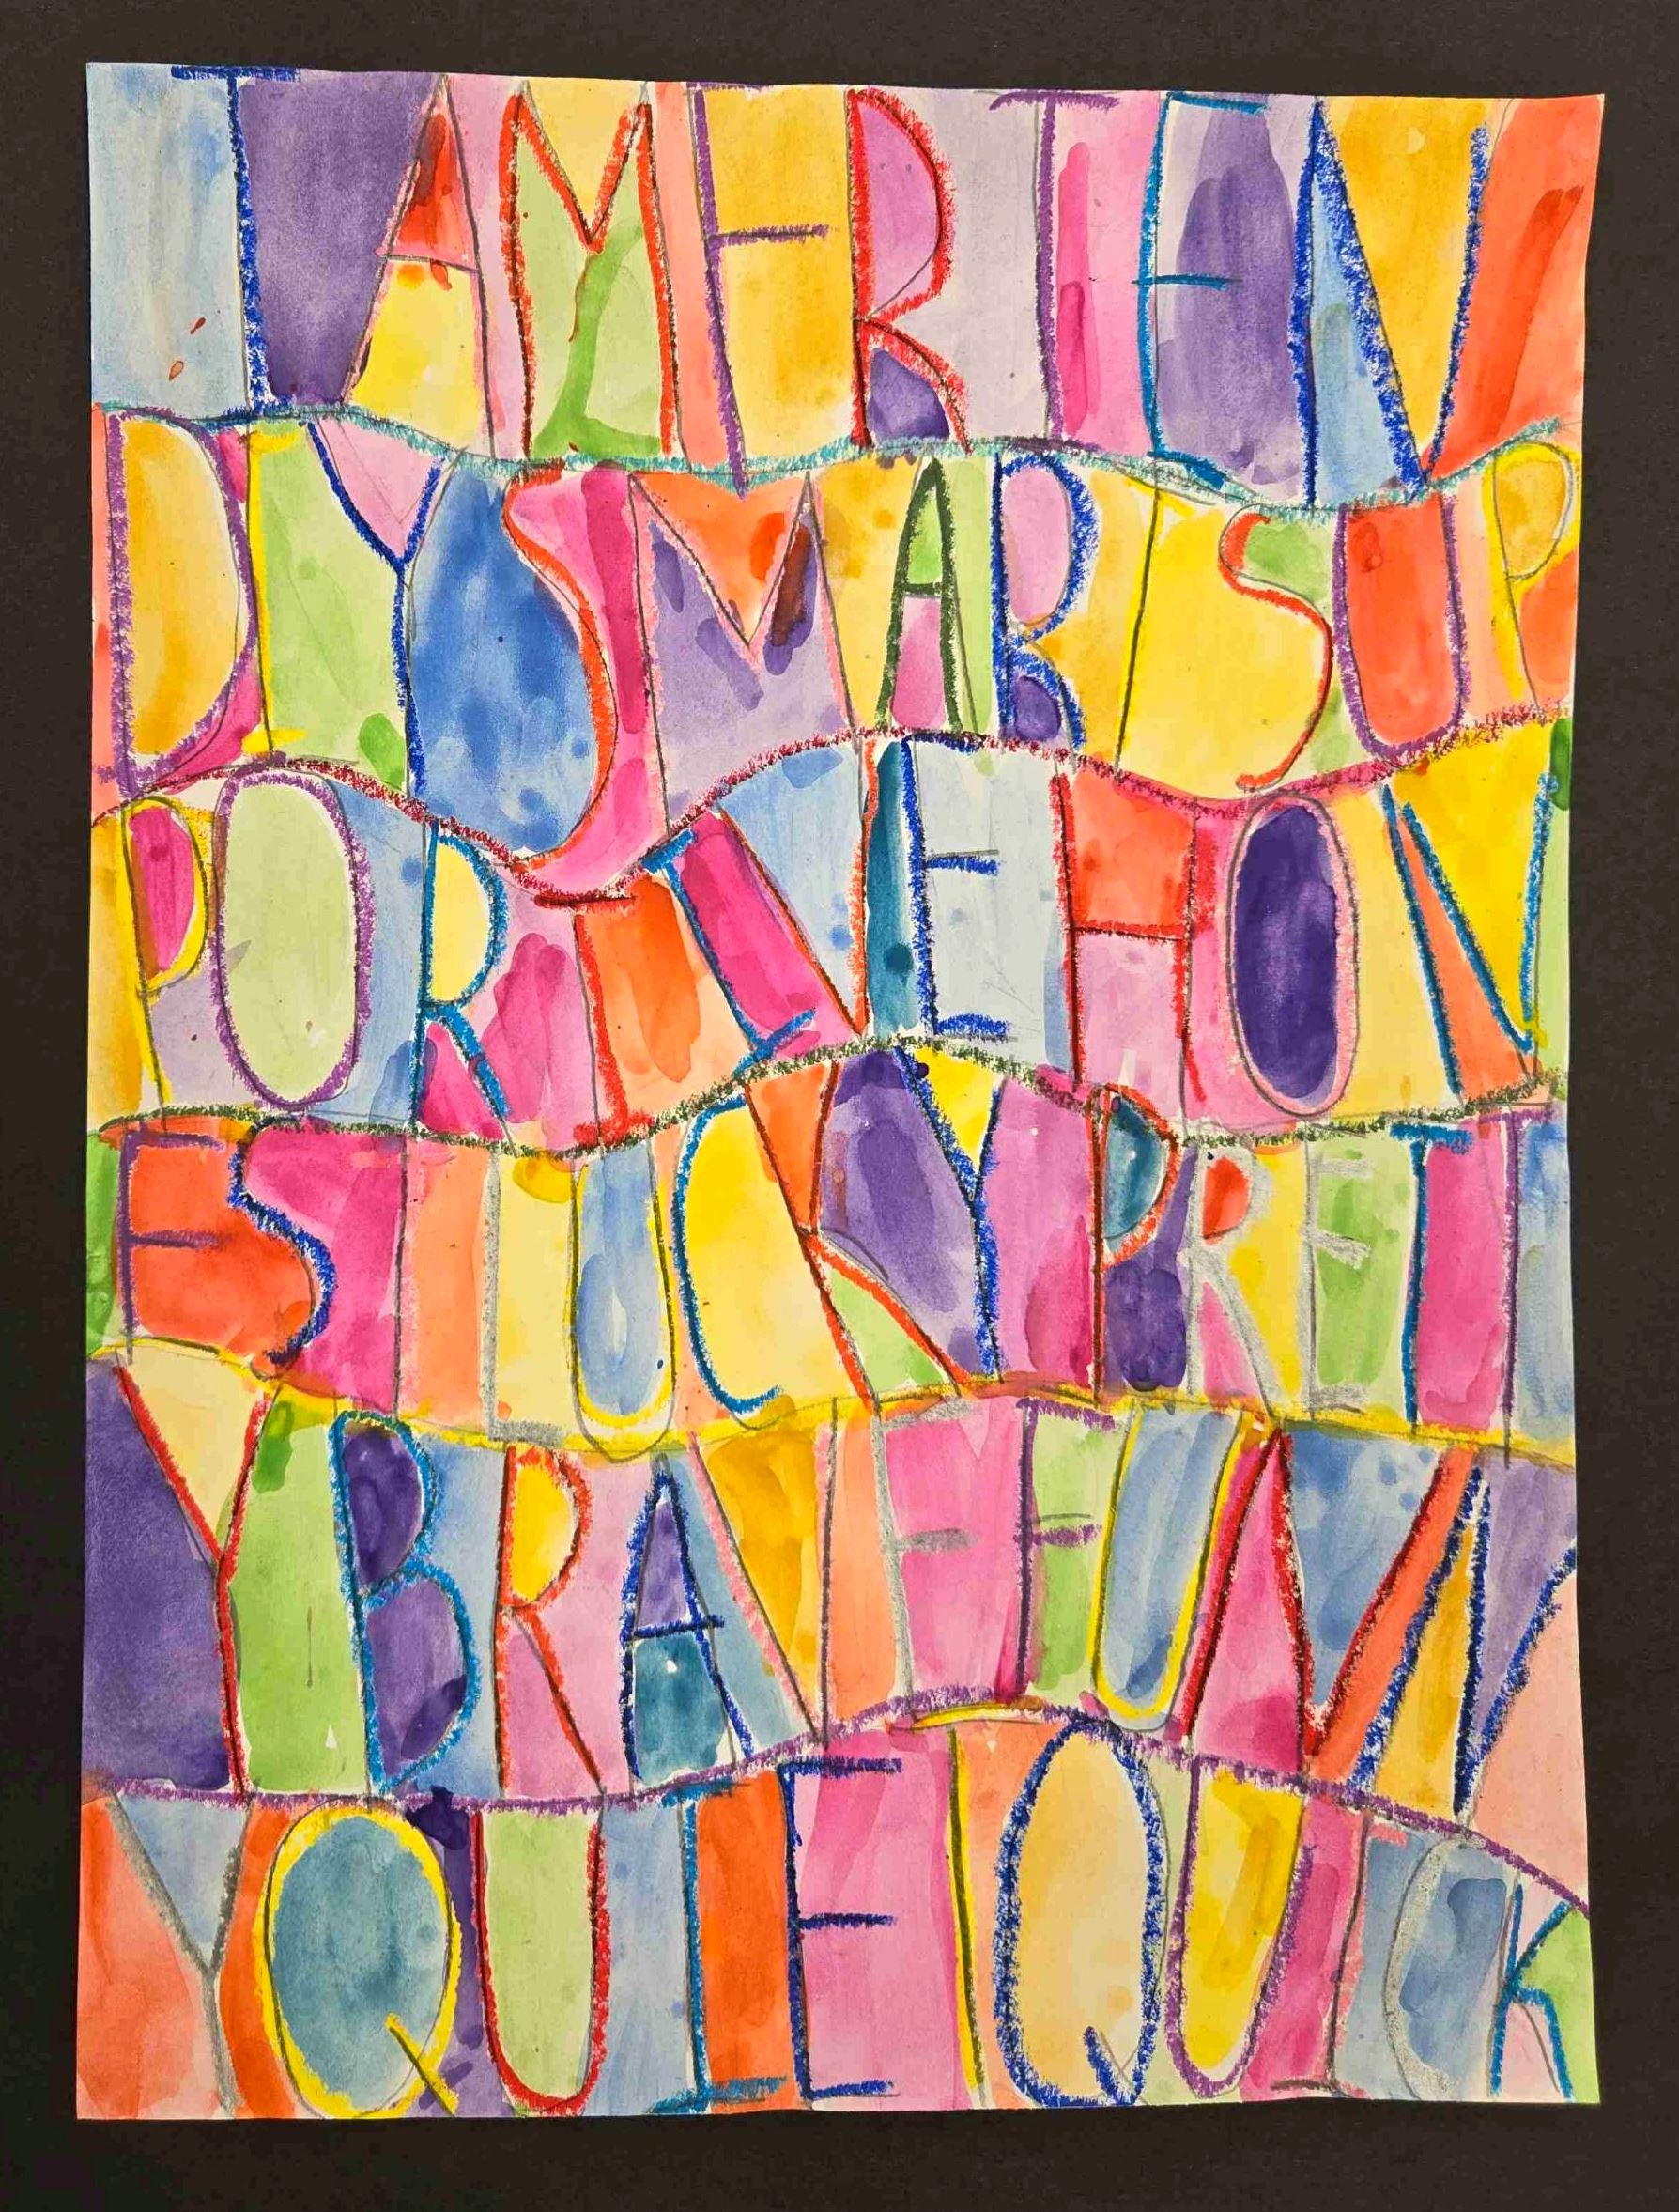 IAMFRIEN
DLYSMARTSUP
PORTIVEHON
ESTLUCKYPRETT
YBRAVEFUNN
YQUIETQUICK